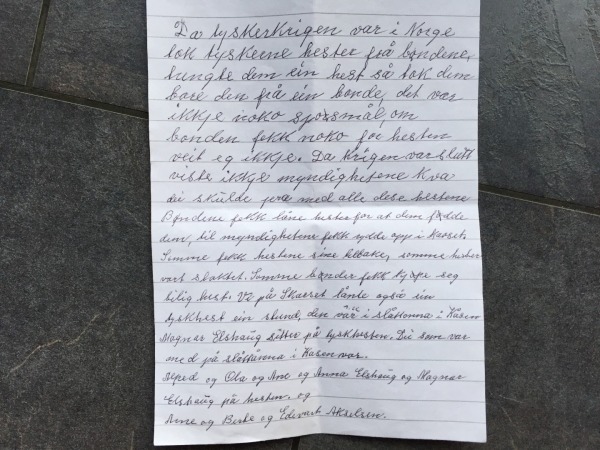 Da tyskerkrigen var i Norge
tok tyskerne hester frå bondene,
tungte dem ein hest så tok dem
bare den frå ein bonde, det var
ikkje noko spørsmål, om
bonden fekk noko for hesten
veit eg ikkje. Da krigen var slutt
viste ikkje myndighetene kva
di skulde jera med alle dese hestene
Bøndene fekk låne hester for at dem fødde
dem, til myndighetene fekk rydde opp i kaoset.
Somme fekk hestene sine tilbake, somme hester
vart slaktet. Somme bønder fekk kjøpe seg
bilig hest. Vi på Skarset lånte også ein
tyskhest ein stund, den var i slåttonna i Kåsen
Magnar Elshaug sitter på tyskhesten. Di som var
med på slåttånna i Kasen var.
Alfred og Ola og Ane og Anna Elshaug og Magnar
Elshaug på hesten. og
Arne og og Edvart Akselsen.